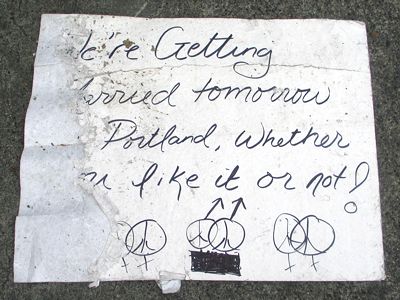 e're Getting
arried tomorrow
Portland, whether
u like it or not!